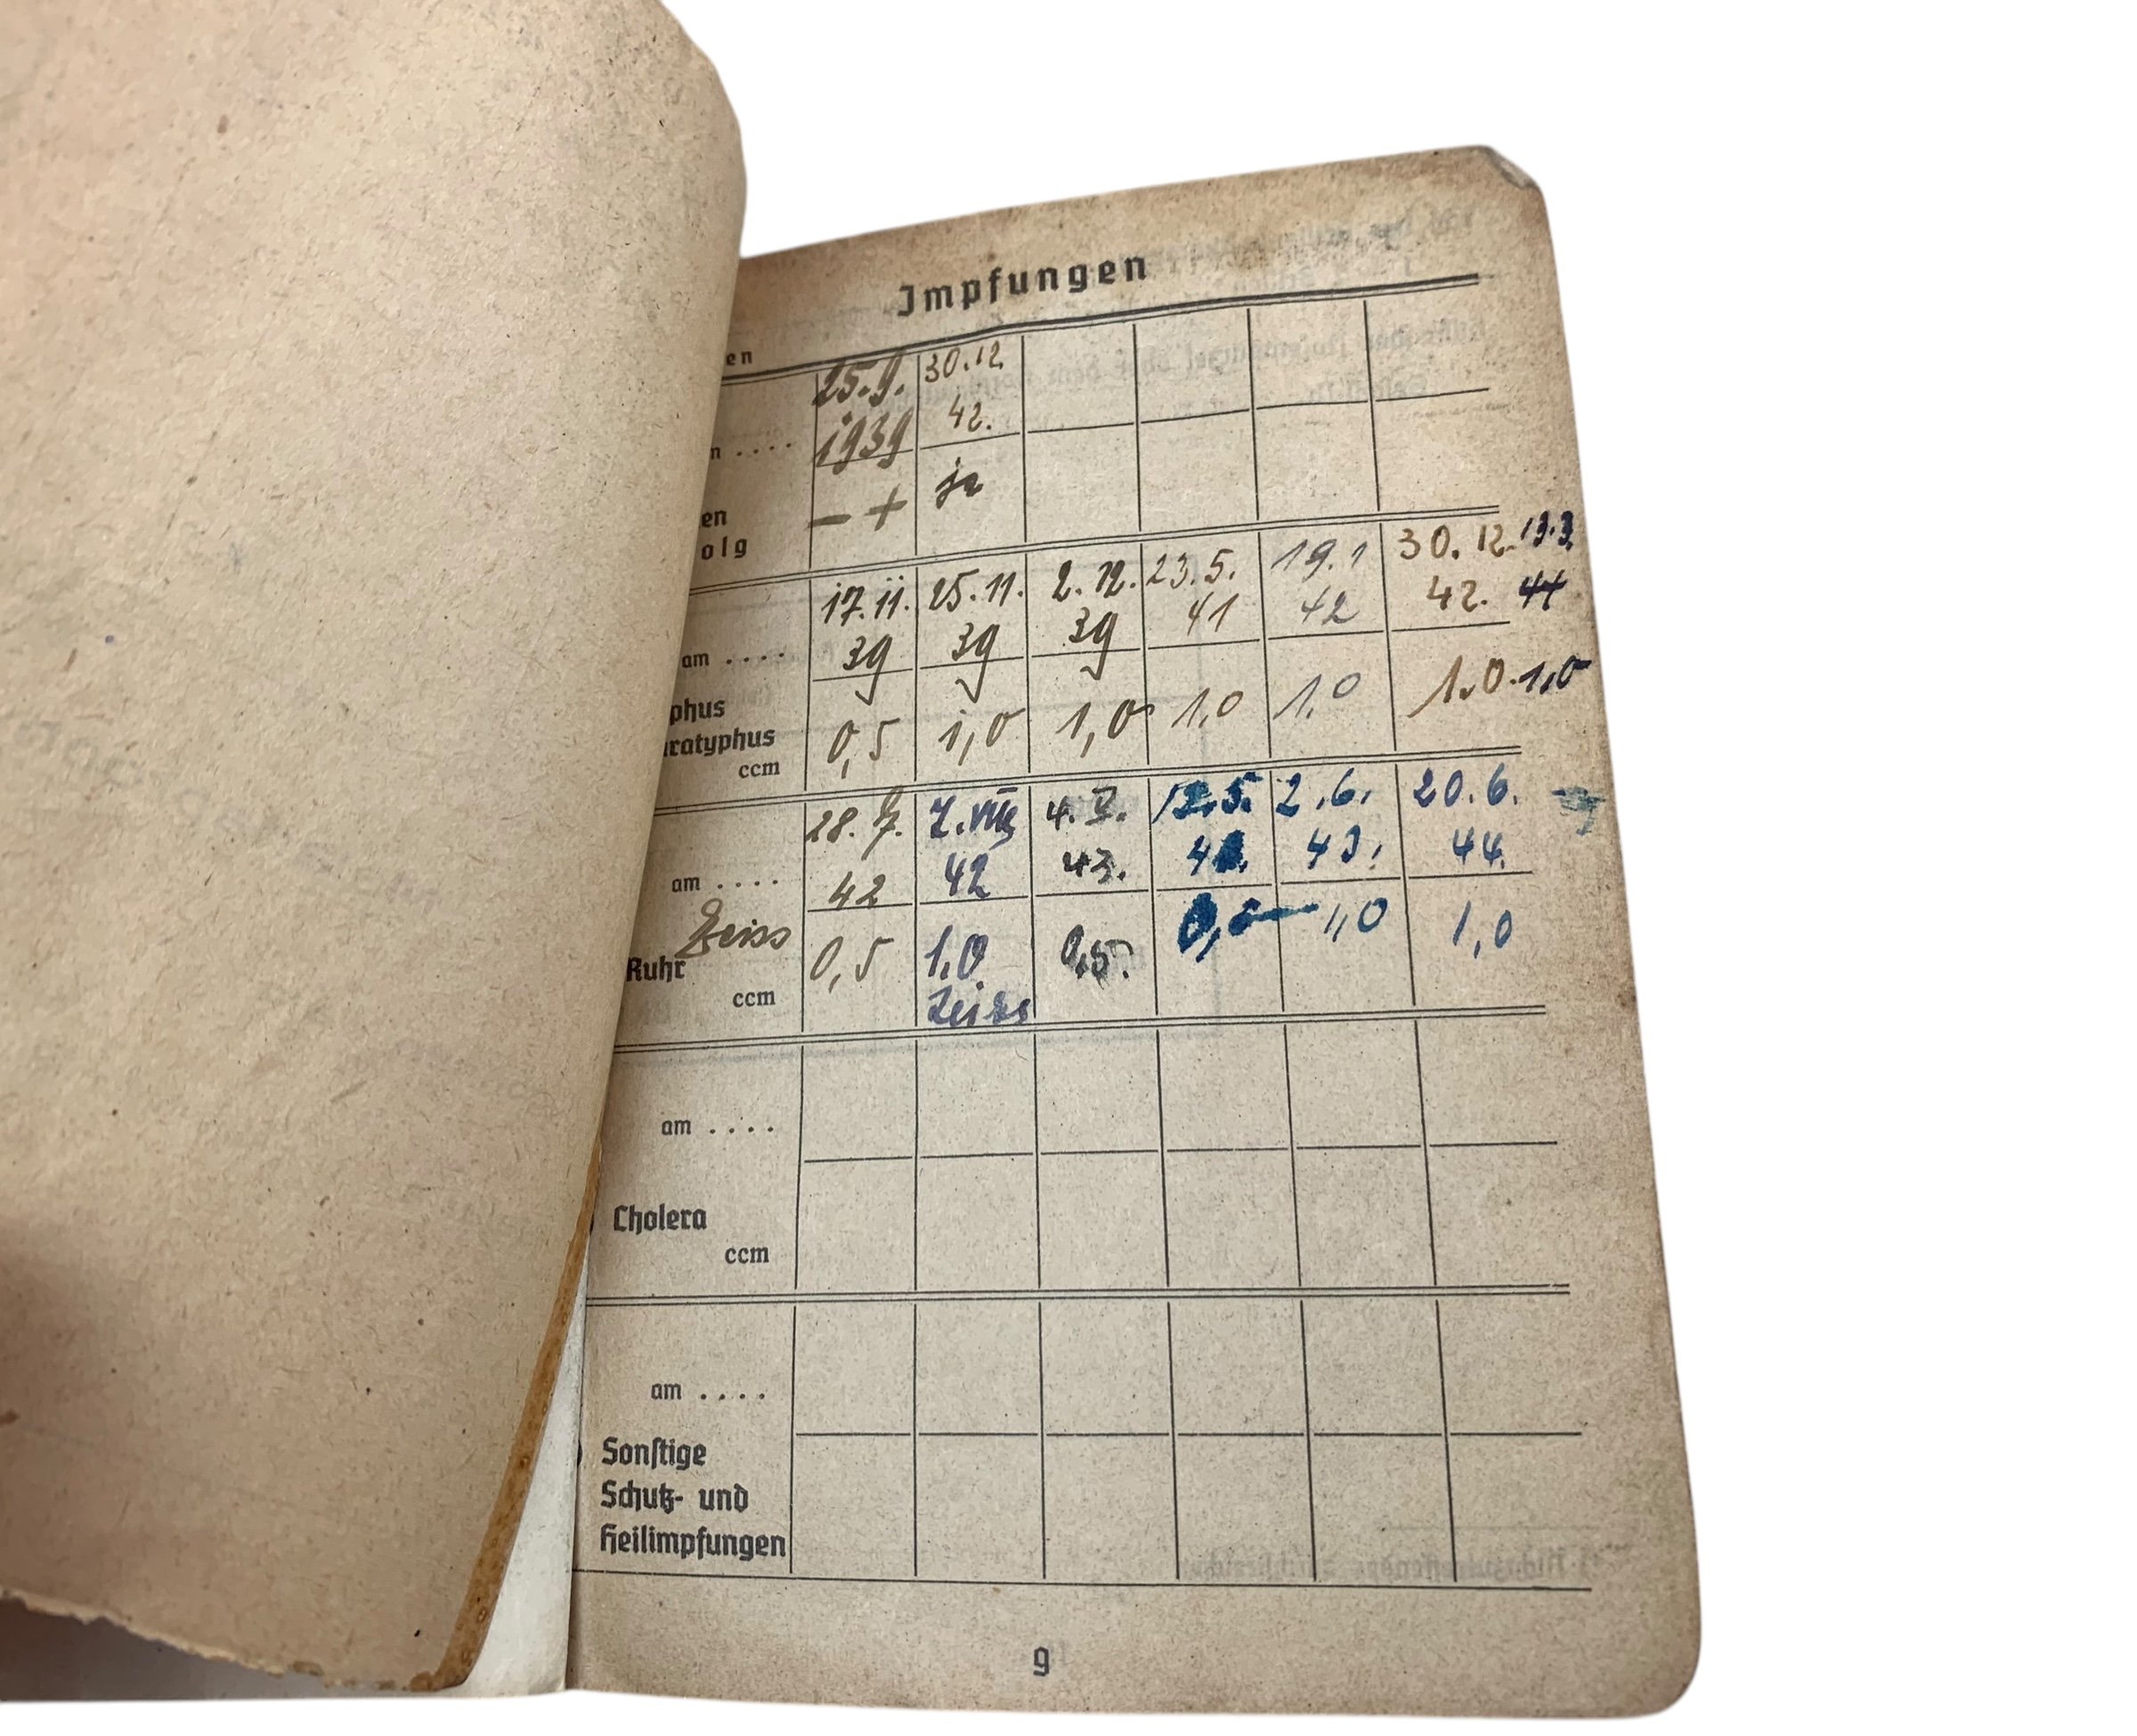 Impfungen
en
25.9. 30.12.
n .... 1939 42.
en - + ja
olg
17.11. 25.11. 2.12. 23.5. 19.1 30.12. 13.3.
am .... 39 39 39 41 42 42. 44
phus
ratyphus 0,5 1,0 1,0 1,0 1,0 1.0. 1,0
ccm
28.7. 7.VIII 4.V. 12.5. 2.6. 20.6.
am .... 42 42 43. 43. 44.
Zeiss
Ruhr 0,5 1.0 0,5. 0,5 1,0 1,0
ccm Zeiss
am ....
Cholera
ccm
am ....
Sonſtige
Schutz- und
Heilimpfungen
9